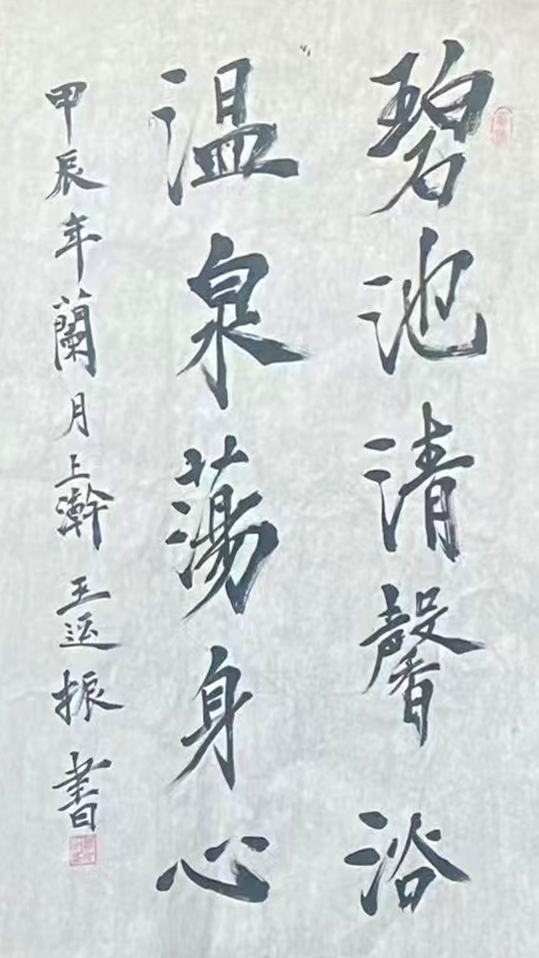 碧池清馨浴
温泉蕩身心
甲辰年蘭月上澣王运振書